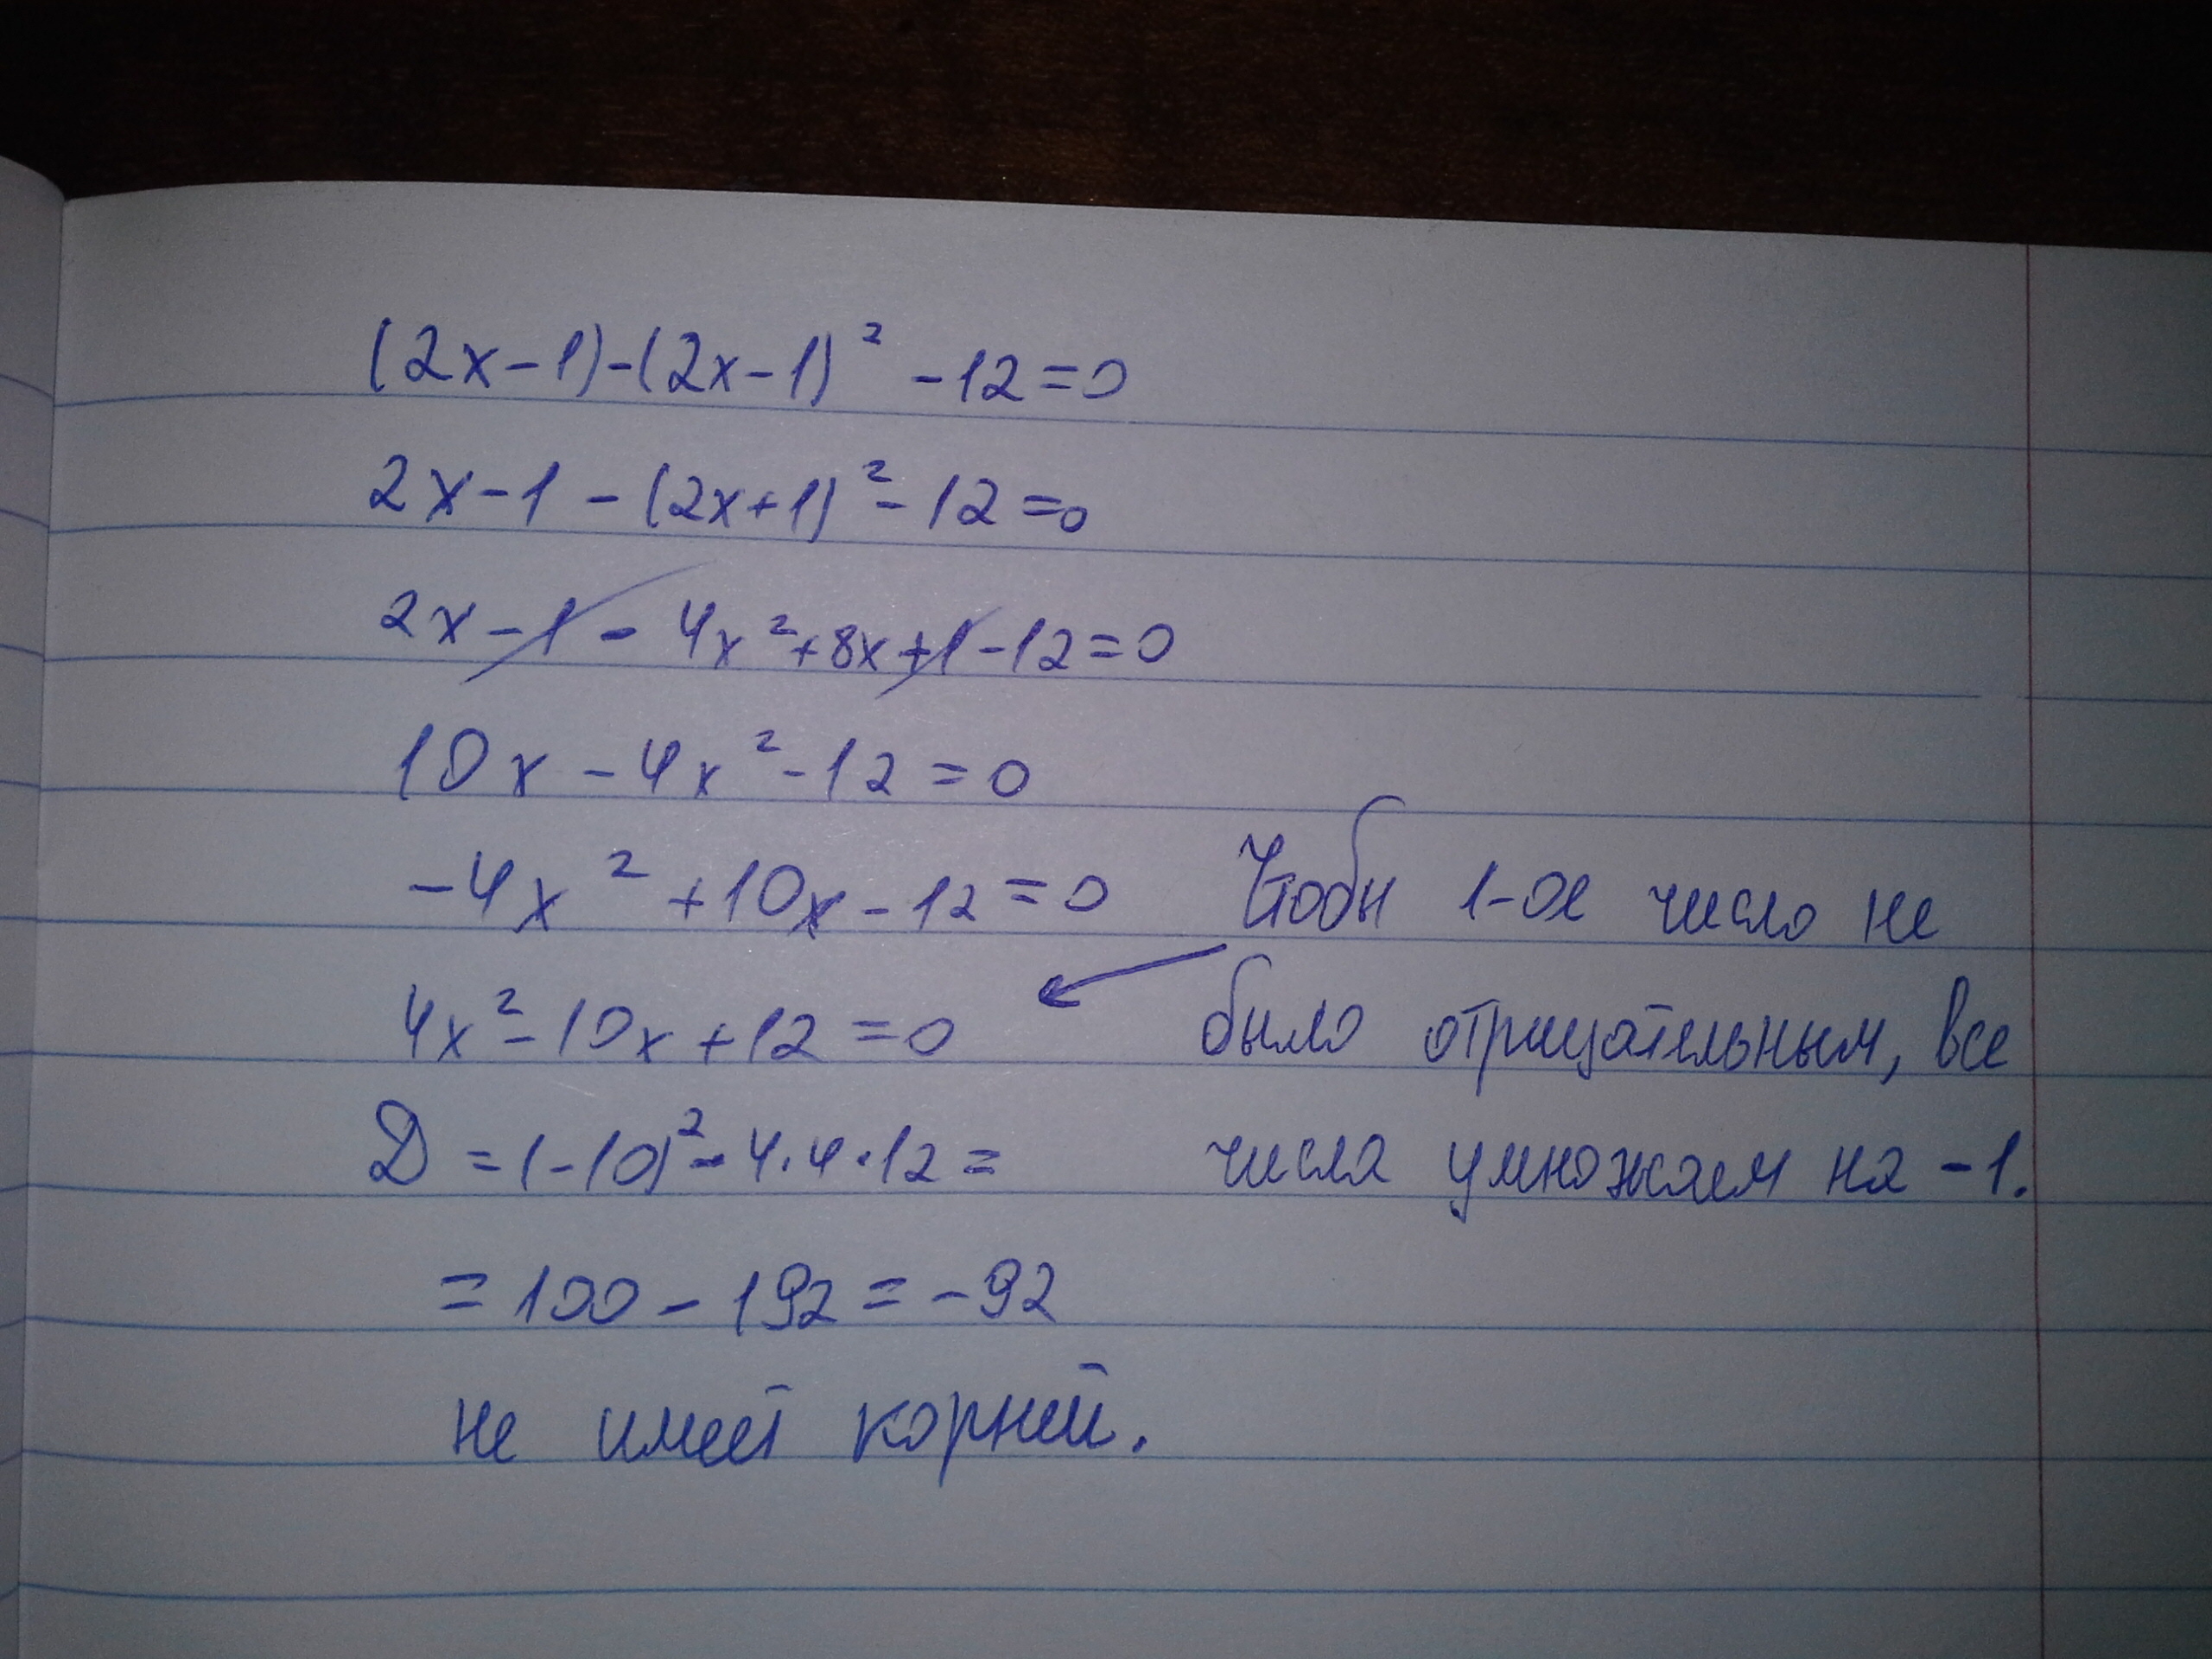 (2x-1)-(2x-1)² -12=0
2x-1-(2x+1)²-12=0
2x-1-4x²+8x+1-12=0
10x-4x²-12=0
-4x²+10x-12=0
4x²-10x+12=0
D=(-10)²-4·4·12=
=100-192=-92
не имеет корней.
Чтобы 1-ое число не
было отрицательным, все
числа умножаем на -1.